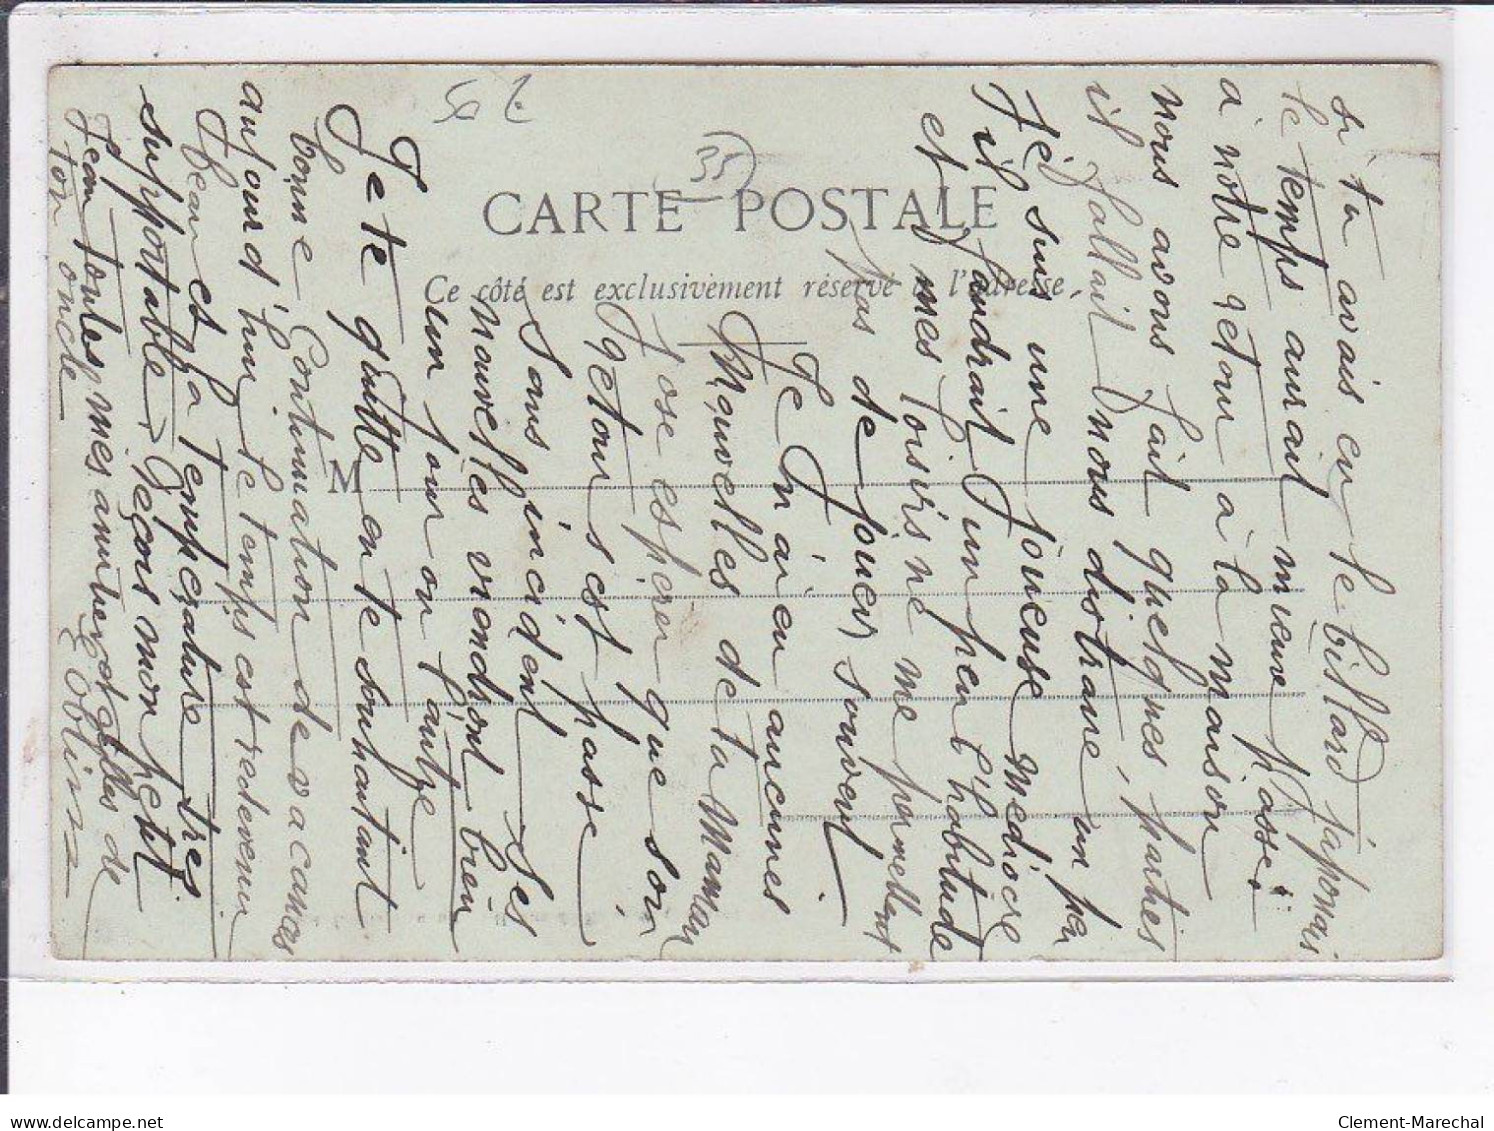 si tu avais eu le billard japonais
le temps aurait mieux passé
à notre retour à la maison
nous avons fait quelques parties
il fallait nous distraire, un peu
Je suis une joueuse médiocre
il faudrait un peu l'habitude
et mes loisirs ne me permettent
pas de jouer souvent
Je n'ai eu aucunes
nouvelles de ta Maman
J'ose espérer que son
retour s'est passé
sans incident ses
nouvelles viendront bien
un jour ou l'autre
Je te quitte en te souhaitant
bonne Continuation de vacances
aujourd'hui le temps est redevenu
beau et la température très
supportable Reçois mon petit
Jean toutes mes amitiés et celles de
ton oncle
CARTE POSTALE
Ce côté est exclusivement réservé à l'adresse
M
35